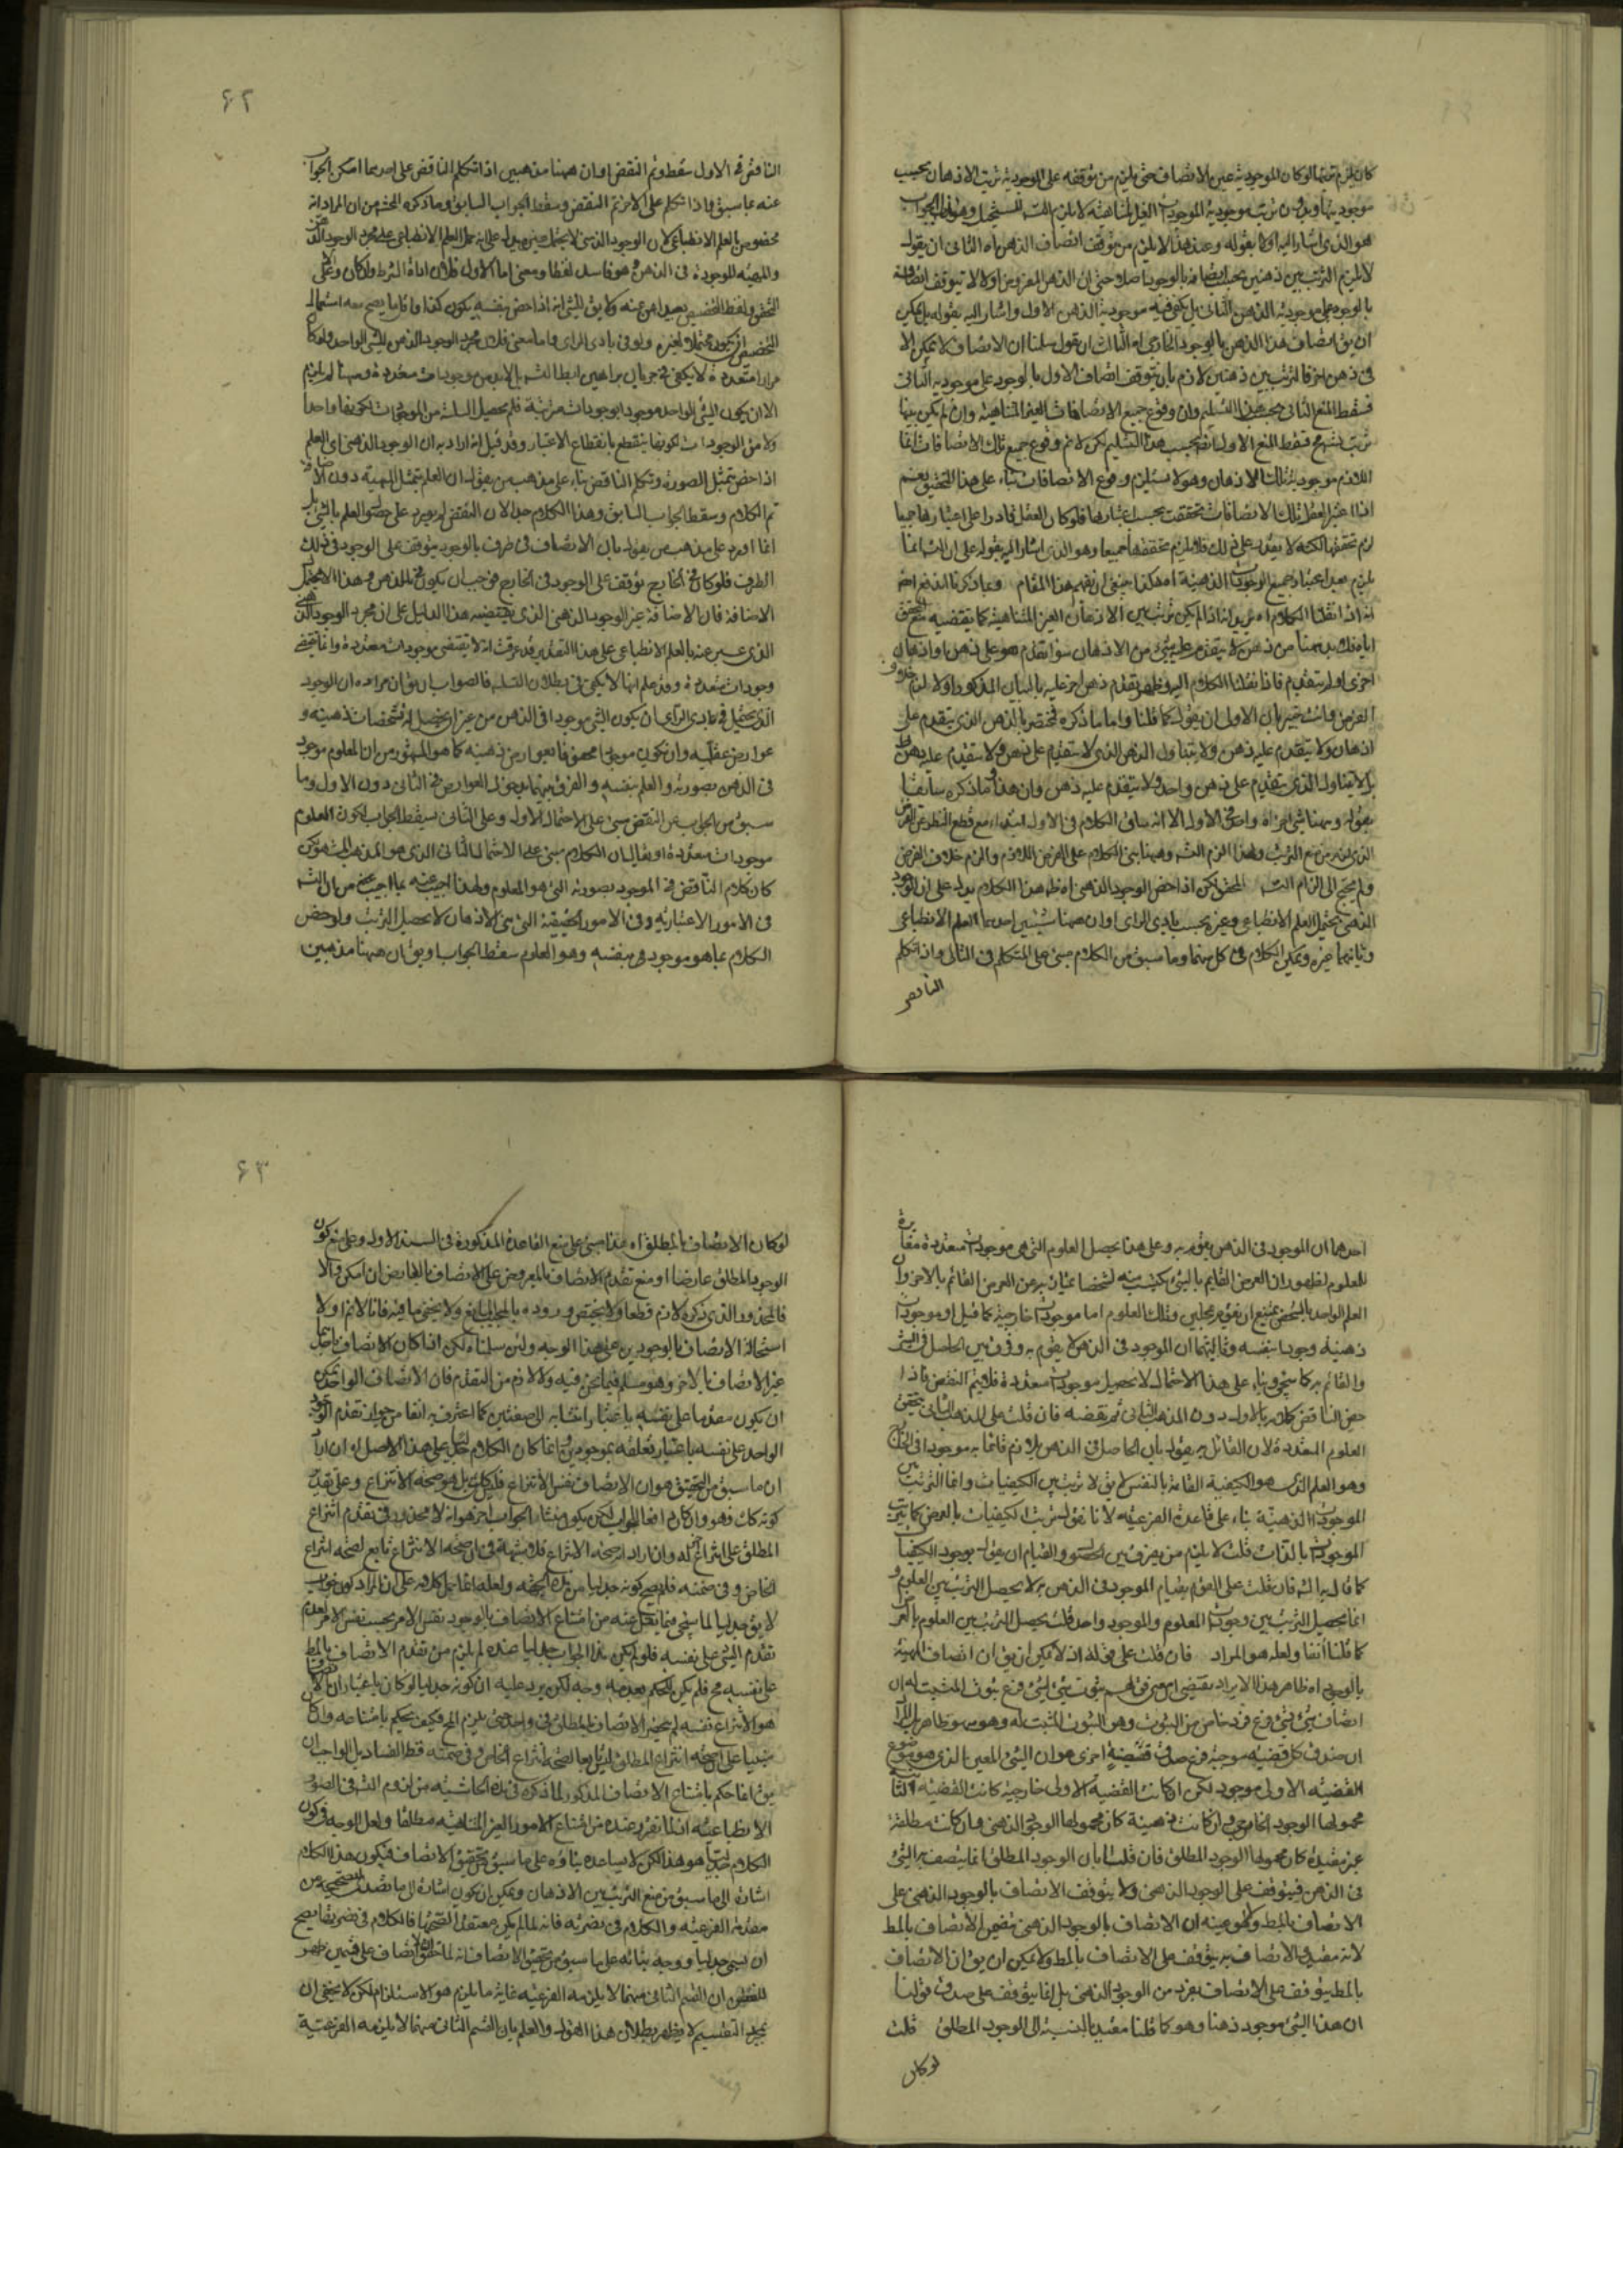 كان يلزم تقدمها لو كان الموجودية عين الاتصاف حتى يلزم من توقفه على الموجودية ترتب الاذهان بحسب
هو الذى اشار اليه اولا بقوله وعند هذا لا يلزم من توقف اتصاف الذهن اه الثانى ان يقول
لا يلزم الترتب بين ذهنين بحسب اتصافه بالوجود اصلا حتى ان الذهن المفروض اولا لا يتوقف اتصافه
بالوجود على موجودية الذهن الثانى بل يكفى فيه موجودية الذهن الاول واشار اليه بقوله بل يمكن
ان يق اتصاف هذا الذهن بالوجود الخارجى اه الثالث ان يقول سلمنا ان الاتصاف لا يمكن الا
فى ذهن اخر فالترتب بين ذهنين لازم بان يتوقف اتصاف الاول بالوجود على موجودية الثانى
فسقط المنع الثانى بحسب هذا التسليم وان وقوع جميع الاتصافات الغير المتناهية وان لم يكن بينها
اللازم موجودية تلك الاذهان وهو لا يستلزم وقوع الاتصافات بناء على هذا التحقيق نعم
اذا اعتبر العقل تلك الاتصافات تحققت بحسب اعتبارها فلو كان العقل قادرا على اعتبارها جميعا
لزم تحققها لكنه لا يقدر على ذلك فلا يلزم تحققها جميعا وهو الذى اشار اليه بقوله على ان التسه انما
يلزم بعد اعتبار جميع الوجودات الذهنية اه هكذا ينبغى ان يفهم هذا المقام وبما ذكرنا اندفع
الغرض وانت خبير بان الاولى ان يقول كما قلنا واما ما ذكره فمختص بالذهن الذى يتقدم على
اذهان ولا يتقدم عليه ذهن ولا يتناول الذهن الذى لا يتقدم على ذهن ولا يتقدم عليه ذهن
بل لا يتناول الذى يتقدم على ذهن واحد ولا يتقدم عليه ذهن وان هذا ما ذكره سابقا
ولم يحتج الى الزام التسه المحقق لكن اذا خص الوجود الذهنى اه ظاهر هذا الكلام يدل على ان الوجود
الذهنى يحتمل العلم الانطباعى وغيره بحسب بادى الراى او ان ههنا شيئين احدهما العلم الانطباعى
وثانيهما غيره ويمكن الكلام فى كل منهما وما سبق من الكلام مبنى على المتكلم فى الثانى واذا تكلم
الناقض
۶۲
الناقض فى الاول سقط وتم النقض او ان ههنا مذهبين اذا تكلم الناقض على احدهما امكن الجواب
عنه بما سبق واذا تكلم على الاخر تم النقض وسقط الجواب السابق وما ذكره المحشى من ان المراد انه
التحقق ولفظ التخصيص بعيد اه عنه ولا يق للشئ انه اذا خص بنفسه يكون كذا واقل ما يصح معه استعمال
التخصيص ان يكون محتملا لغيره ولو فى بادى الراى واما معنى فلان مجرد الوجود الذهنى للشئ الواحد ولو كان
مرارا متعددة لا يكفى فى جريان براهين ابطال التسه بل لا بد من موجودات متعددة وههنا لم يلزم
الا ان يكون الشئ الواحد موجودا بوجودات مرتبة فلم يحصل السلسلة من الموجودات لكونها واحدا
ولا من الوجودات لكونها ينقطع بانقطاع الاعتبار وقد قيل انه اراد به ان الوجود الذهنى اى العلم
اذا خص بتمثل الصورة وتكلم الناقض بناء على مذهب من يقول ان العلم بتمثل المهية دون الاضافة
تم الكلام وسقط الجواب السابق وهذا الكلام
انما اورد على مذهب من يقول بان الاتصاف فى ظرف بالوجود يتوقف على الوجود فى ذلك
الظرف فلو كان فى الخارج توقف على الوجود فى الخارج فوجب ان يكون فى الذهن
الاضافة فان الاضافة غير الوجود الذهنى الذى يقتضيه هذا الدليل على ان مجرد الوجود الذهنى
الذى عبر عنه بالعلم الانطباعى على هذا التقدير قد عرفت انه لا يقتضى موجودات متعددة وانما يقتضى
وجودات متعددة وقد علم انها لا يكفى فى بطلان التسلسل فالصواب ان يق ان مراده ان الوجود
الذهنى يحتمل فى بادى الراى ان يكون الشئ موجودا فى الذهن من غير ان يحصل له تشخصات ذهنية و
عوارض عقلية وان يكون موجودا محفوفا بعوارض ذهنية كما هو المشهور من ان المعلوم موجود
فى الذهن بصورته والعلم بنفسه والفرق بينهما بدخول العوارض فى الثانى دون الاول وما
سبق من الجواب عن النقض مبنى على الاحتمال الاول وعلى الثانى يسقط الجواب لكون العلوم
موجودات متعددة او يقال ان الكلام مبنى على الاحتمال الثانى الذى هو المذهب المشهور لكن
كان كلام الناقض فى الموجود بصورته التى هو المعلوم ولهذا اجيب عنه بما اجيب من ان التسه
فى الامور الاعتبارية وفى الامور الحقيقية التى هى الاذهان لا يحصل الترتب ولو خص
الكلام بما هو موجود فيه بنفسه وهو العلوم سقط الجواب او يق ان ههنا مذهبين
احدهما ان الموجود فى الذهن يقوم به وعلى هذا يحصل العلوم التى هى موجودات متعددة مغايرة
للمعلوم لظهور ان العرض القايم بالشئ يكتسب منه تشخصا يمتاز به عن العرض القائم بالاخر وان
العلم الواحد بالشخص يمتنع ان يقوم بمحلين وتلك العلوم اما موجودات خارجية كما قيل او موجودات
ذهنية وجودا بنفسه وثانيهما ان الموجود فى الذهن لا يقوم به وفرق بين الحاصل فى الشئ
والقائم به كما سيجئ وبناء على هذا الاحتمال لا يحصل موجودات متعددة فلا يتم النقض فاذا
خص الناقض كلامه بالاول دون المذهب الثانى تم نقضه فان قلت على المذهب الثانى يتحقق
العلوم المتعددة لان القائل به يقول بان الحاصل فى الذهن يلازم قائما به موجودا فى الخارج
وهو العلم الذى هو الكيفية القائمة بالنفس لا يق لا ترتب بين الكيفيات وانما الترتب بين
الموجودات الذهنية بناء على قاعدة الفرعية لانا نقول يترتب الكيفيات بالعرض كما يترتب
الموجودات بالذات قلت لا يلزم من يفرق بين الحصول والقيام ان يقول بوجود الكيفيات
كما قال به الشه فان قلت على القول بقيام الموجود فى الذهن به لا يحصل الترتب بين العلوم و
انما يحصل الترتب بين وجودات المعلوم والموجود واحد قلت يحصل الترتب بين العلوم بالعرض
كما قلنا آنفا ولعله هو المراد فان قلت على قوله اذ لا يمكن ان يق ان اتصاف المهية
بالوجود اه ظاهر هذا الايراد يقتضى ان معنى قولهم ثبوت شئ لشئ فرع ثبوت المثبت له ان
اتصاف شئ بشئ فرع فرد خاص من الثبوت وهو الثبوت للمثبت له وهو سهو ظاهر بل المراد
ان صدق كل قضية موجبة فرع صدق قضية اخرى هو ان الشئ المعين الذى هو موضوع
القضية الاولى موجود لكن ان كانت القضية الاولى خارجية كانت القضية الثانية
محمولها الوجود الخارجى وان كانت ذهنية كان محمولها الوجود الذهنى وان كانت مطلقة
غير مقيدة كان محمولها الوجود المطلق فان قلت بان الوجود المطلق انما يتصف به الشئ
فى الذهن فيتوقف على الوجود الذهنى ولا يتوقف الاتصاف بالوجود الذهنى على
الاتصاف بالمط
لانه مقيد والاتصاف به يتوقف على الاتصاف بالمط ولا يمكن ان يق ان الاتصاف
بالمط يتوقف على الاتصاف بفرد من الوجود الذهنى بل انما يتوقف على صدق قولنا
ان هذا الشئ موجود ذهنا وهو كما قلنا مقيد بالنسبة الى الوجود المطلق قلت
لو كان
۶۳
لو كان الاتصاف بالمطلق اه هذا مبنى على منع القاعدة المذكورة فى السند الاول وعلى منع كون
الوجود المطلق عارضا او منع تقدم الاتصاف بالمعروض على الاتصاف بالعارض ان امكن والا
فالمحذور الذى ذكره لازم قطعا ولا يختص وروده بالمجيب ولا يخفى ما فيه فانا لا نم اولا
استحالة الاتصاف بالوجودين على هذا الوجه ولئن سلمناه لكن اذا كان الاتصاف باحدهما
غير الاتصاف بالاخر وهو مسلم فيما نحن فيه ولا لازم من التقدم فان الاتصاف الواحد يمكن
ان يكون مقدما على نفسه باعتبار انتسابه الى صفتين كما اعترف به آنفا من جواز تقدم الوجود
الواحد على نفسه باعتبار تعلقه بموجودين وانما كان الكلام جدليا على هذا الاصل له ان اراد
ان ما سبق من التحقيق هو ان الاتصاف نفس الانتزاع فليس كك بل هو صحة الانتزاع وعلى تقدير
كونه كك فهو وان كان دافعا للجواب لكن يكون منشأ لجواب اخر هو انه لا محذور فى تقدم انتزاع
المطلق على انتزاع اخر له وان اراد صحة الانتزاع فلا شبهة فى ان صحة الانتزاع تابع لصحة انتزاع
الخاص وفى ضمنه فلا يصح كونه جدليا من هذه الجهة ولعله انما حمل كلامه على ان المراد كون الجواب
تقدم الشئ على نفسه فلو لم يكن هذا الجواب جدليا عنده لم يلزم من تقدم الاتصاف بالمط
على نفسه مح فلم يكن للحكم بعدمه وجه لكن يرد عليه ان كونه جدليا لو كان باعتبار ان الاتصاف
هو الانتزاع نفسه لم يحضر الاتصاف بالمطلق فى واحد حتى يلزم المح فكيف يحكم بامتناعه وان كان
مبنيا على ان صحة انتزاع المطلق تابعا لصحة انتزاع الخاص وفى ضمنه فظ الفساد بل الواجب ان
يق انما حكم بامتناع الاتصاف المذكور لما ذكره فى هذه الحاشية من لزوم التسه فى الصور
الانطباعية لما تقرر عنده من امتناع الامور الغير المتناهية مطلقا ولعل الوجه فى كون
الكلام جدليا هو هذا لكن لا يساعده بناؤه على ما سبق من تحقيق الاتصاف فيكون هذا الكلام
اشارة الى ما سبق من منع الترتب بين الاذهان ويمكن ان يكون اشارة الى ما تصدى لتصحيحه من
مقدمة الفرعية والكلام فى نصرته فانه لما لم يكن معتقدا لصحتها فالكلام فى نصرتها يصح
ان يسمى جدليا ووجه بنائه على ما سبق من تحقيق الاتصاف انه لما تحقق ان الاتصاف على قسمين ظهر
للفطن ان القسم الثانى منهما لا يلزمه الفرعية غاية ما يلزم هو الاستلزام لكن لا يخفى ان
مجرد التقسيم لا يظهر بطلان هذا القول والعلم بان القسم الثانى منهما لا يلزمه الفرعية